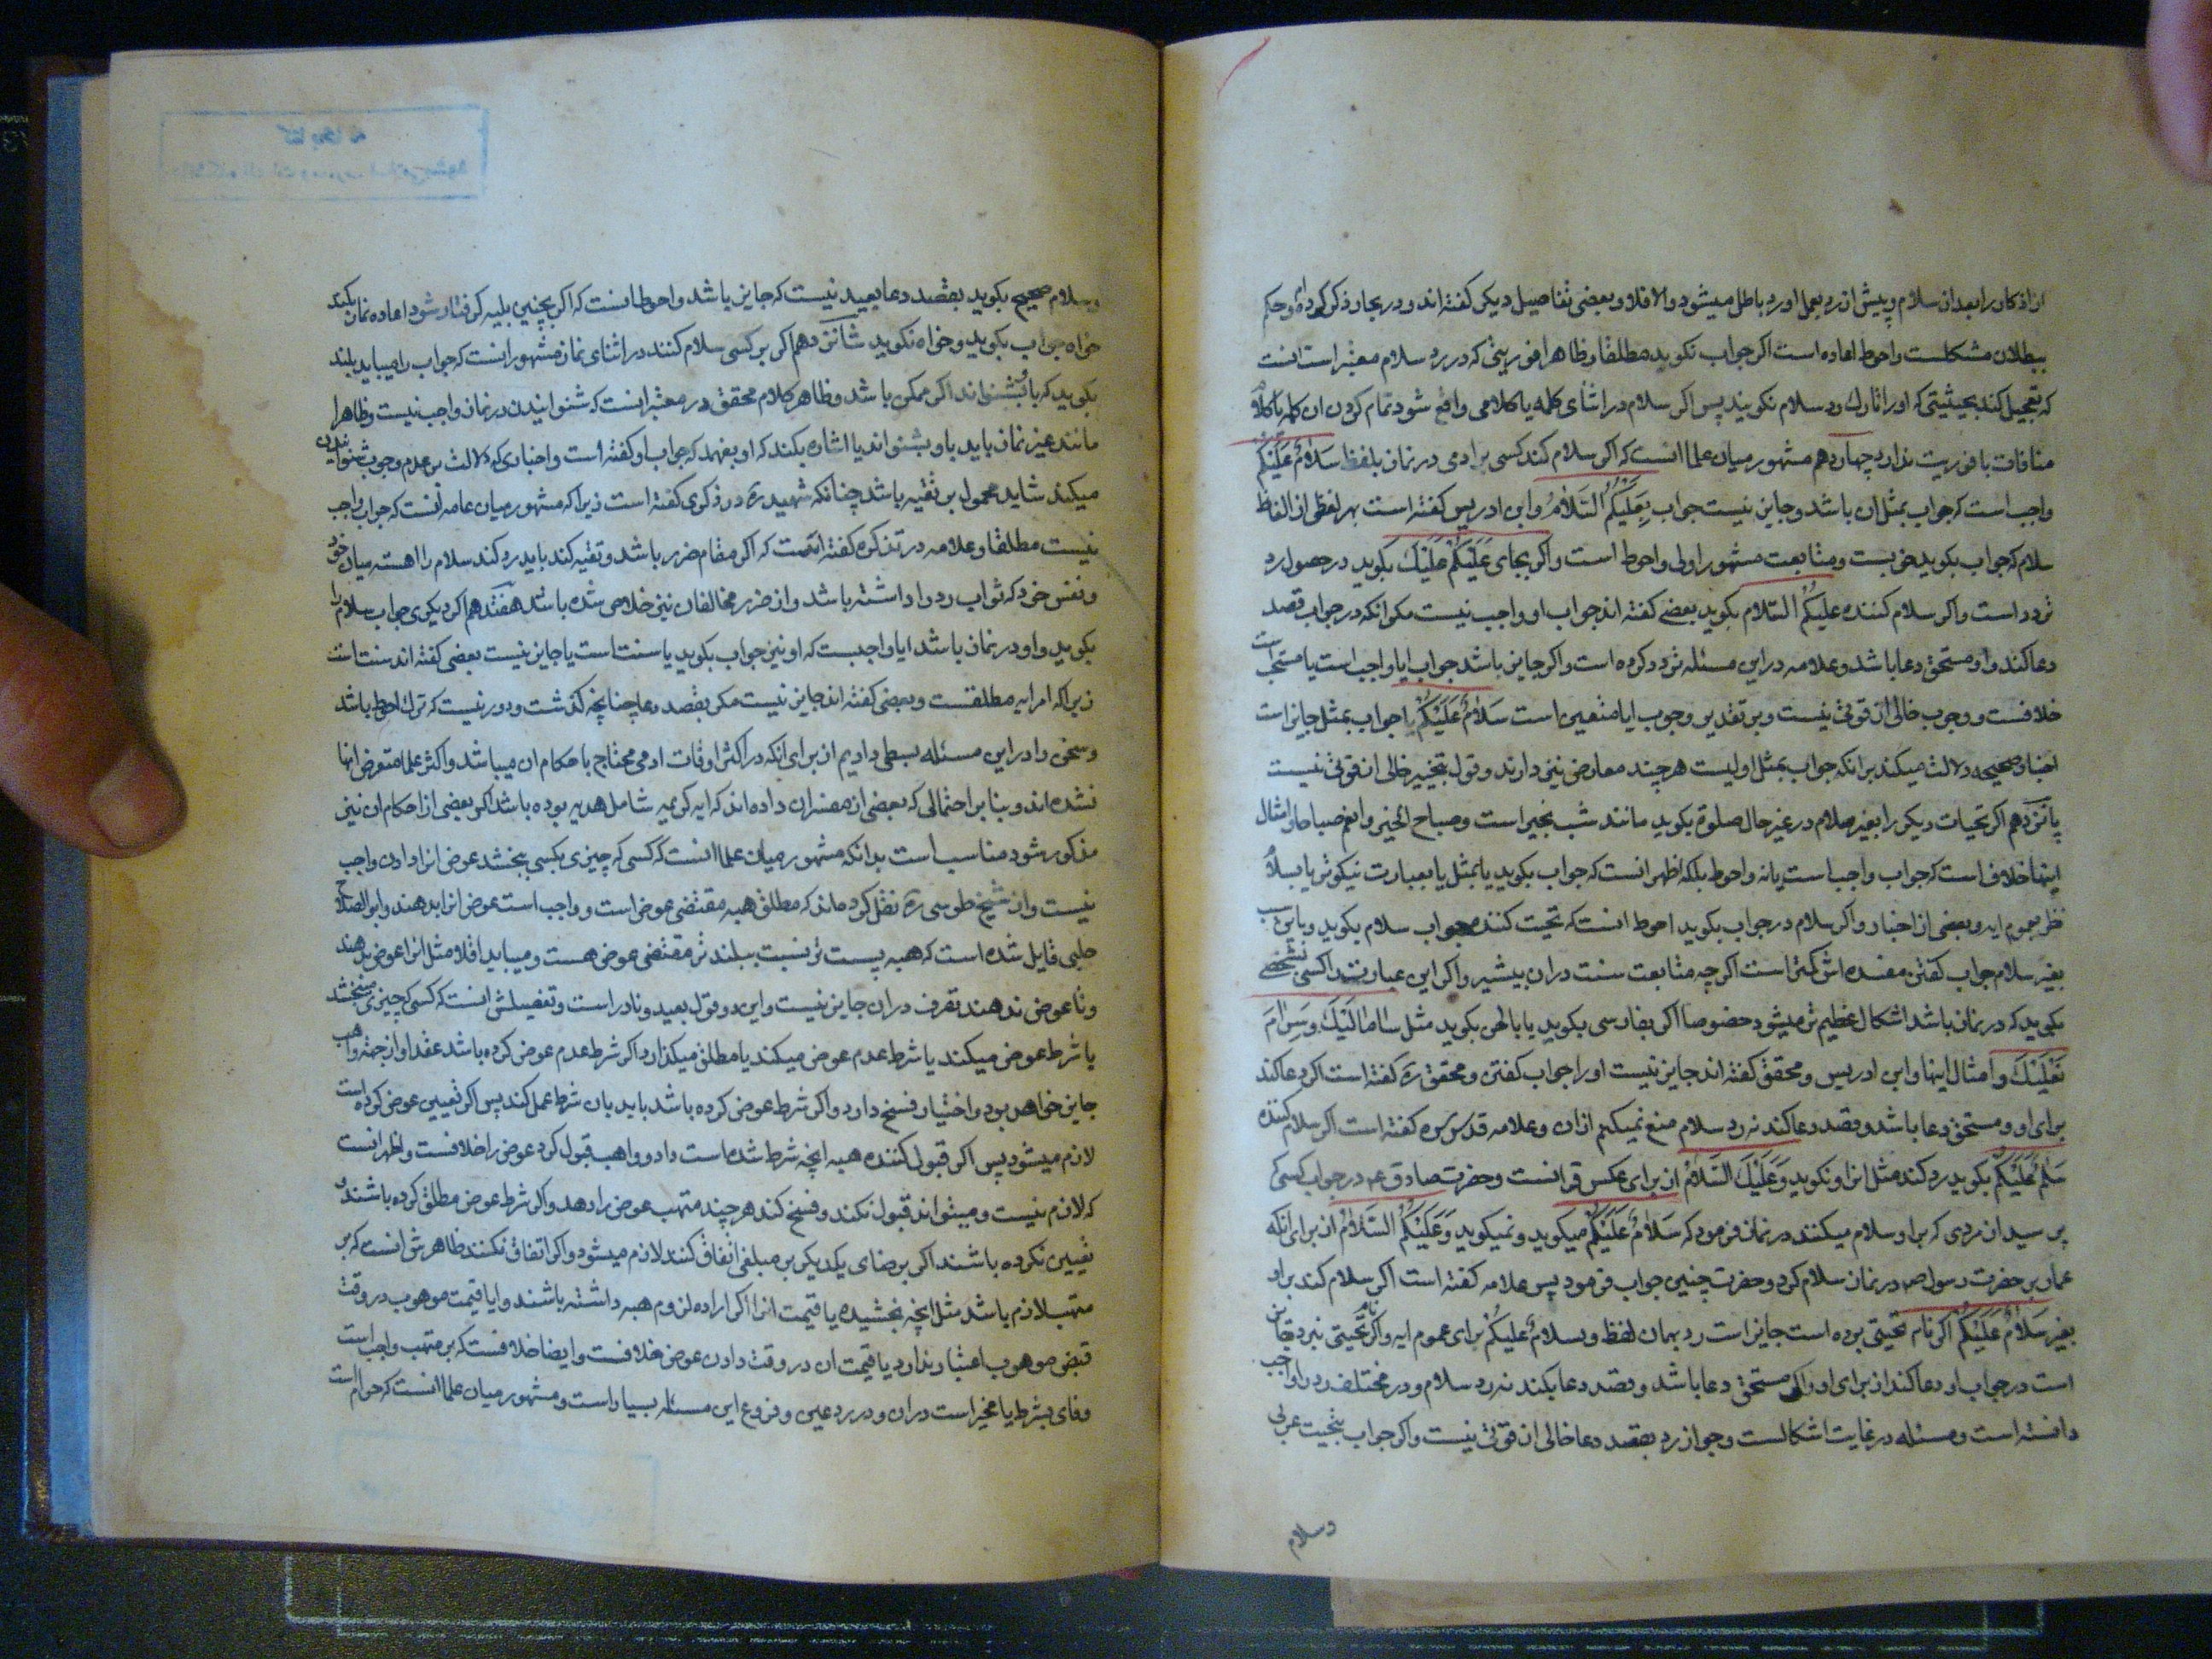 از اذکار را بعد از سلام و پیش از رد بعمل اورد باطل میشود والا فلا و بعضی تفاصیل دیکر کفته‌اند و در بحار ذکر کرده‌ام و حکم
ببطلان مشکلست و احوط اعاده است اکر جواب نکوید مطلقا و ظاهرا فوریتی که در رد سلام معتبر است انست
که تعجیل کند بحیثیتی که او را تارک رد سلام نکویند پس اکر سلام در اثنای کلمه یا کلامی واقع شود تمام کردن ان کلمه یا کلام
منافات با فوریت ندارد چهاردهم مشهور میان علما انست که اکر سلام کند کسی بر ادمی در نماز بلفظ سَلامٌ عَلَیْکُم
واجب است که جواب بمثل ان باشد و جایز نیست جواب بِعَلَیْکُمُ السَّلامُ و ابن ادریس کفته است بهر لفظی از الفاظ
سلام که جواب بکوید خوبست و متابعت مشهور اولی و احوط است و اکر بجای عَلَیْکُمْ عَلَیْکَ بکوید در حصول رد
تردد است و اکر سلام کننده علیکُم السّلام بکوید بعضی کفته‌اند جواب او واجب نیست مکر انکه در جواب قصد
دعا کند و او مستحق دعا باشد و علامه در این مسئله تردد کرده است و اکر جایز باشد جواب ایا واجب است یا مستحب است
خلافست و وجوب خالی از قوتی نیست و بر تقدیر وجوب ایا متعین است سَلامٌ عَلَیْکُمْ یا جواب بمثل جایز است
اخبار صحیحه دلالت میکند بر انکه جواب بمثل اولیست هر چند معارض نیز دارند و قول بتخییر خالی از قوتی نیست
پانزدهم اکر تحیات دیکر را بغیر سلام در غیر حال صلوة بکوید مانند شب بخیر است و صباح الخیر و انعم صباحا و امثال
اینها خلاف است که جواب واجب است یا نه و احوط بلکه اظهر انست که جواب بکوید یا بمثل یا بعبارت نیکوتر یا بسلام
نظر بعموم ایه و بعضی از اخبار و اکر سلام در جواب بکوید احوط انست که تحیت کننده جواب سلام بکوید و باین سبب
بغیر سلام جواب کفتن مفسده‌اش کمتر است اکرچه متابعت سنت در ان بیشتر و اکر این عبارت را کسی بشخصی
بکوید که در نماز باشد اشکال عظیم‌تر میشود خصوصا اکر بفارسی بکوید یا بالحن بکوید مثل سامالَیْکَ و سَرامَ
عَلَیْکَ و امثال اینها و ابن ادریس و محقق کفته‌اند جایز نیست او را جواب کفتن و محقق ره کفته است اکر دعا کند
برای او و مستحق دعا باشد و قصد دعا کند نه رد سلام منع نمیکنم از ان و علامه قدس سره کفته است اکر سلام کننده
سَلامٌ عَلَیْکُمْ بکوید رد کند مثل انرا و نکوید وَعَلَیْکَ السَّلامُ از برای عکس قرانست و حضرت صادق ع در جواب کسی که
پرسید از مردی که بر او سلام میکنند در نماز فرمود که سَلامٌ عَلَیْکُمْ میکوید و نمیکوید وَعَلَیْکُمُ السَّلامُ از برای انکه
عمار بر حضرت رسول ص در نماز سلام کرد و حضرت چنین جواب فرمود پس علامه کفته است اکر سلام کند بر او
بغیر سَلامٌ عَلَیْکُمْ اکر نام تحیتی برده است جایز است رد بهمان لفظ و بسلامٌ علیکُمْ برای عموم ایه و اکر نام تحیتی نبرد جایز
است در جواب او دعا کند از برای او اکر مستحق دعا باشد و قصد دعا بکند نه رد سلام و در مختلف رد را واجب
دانسته است و مسئله در غایت اشکالست و جواز رد بقصد دعا خالی از قوتی نیست و اکر جواب بتحیت عربی
وسلام
وسلام صحیح بکوید بقصد دعا بعید نیست که جایز باشد و احوط انست که اکر بچنین بلیه کرفتار شود اعاده نماز بکند
خواه جواب بکوید و خواه نکوید شانزدهم اکر بر کسی سلام کنند در اثنای نماز مشهور انست که جواب را میباید بلند
بکوید که باو بشنواند اکر ممکن باشد و ظاهر کلام محقق در معتبر انست که شنوانیدن در نماز واجب نیست و ظاهرا
مانند غیر نماز باید باو بشنواند یا اشاره بکند که او بفهمد که جواب او کفته است و اخباری که دلالت بر عدم وجوب شنوانیدن
میکند شاید محمول بر تقیه باشد چنانکه شهید ره در ذکری کفته است زیرا که مشهور میان عامه انست که جواب واجب
نیست مطلقا و علامه در تذکره کفته است که اکر مقام ضرر باشد و تقیه کند باید رد کند سلام را اهسته میان خود
و نفس خود که ثواب رد را داشته باشد و از ضرر مخالفان نیز خلاص شده باشد هفتدهم اکر دیکری جواب سلام را
بکوید و او در نماز باشد ایا واجبست که او نیز جواب بکوید یا سنت است یا جایز نیست بعضی کفته‌اند سنت است
زیرا که امر ایه مطلقست و بعضی کفته‌اند جایز نیست مکر بقصد دعا چنانچه کذشت و دور نیست که ترک احوط باشد
و سخن را در این مسئله بسطی دادیم از برای انکه در اکثر اوقات ادمی محتاج باحکام ان میباشد و اکثر علما متعرض انها
نشده‌اند و بنا بر احتمالی که بعضی از مفسران داده‌اند که ایه کریمه شامل هدیه بوده باشد اکر بعضی از احکام ان نیز
مذکور شود مناسب است بدانکه مشهور میان علما انست که کسی که چیزی بکسی ببخشد عوض انرا دادن واجب
نیست و از شیخ طوسی ره نقل کرده‌اند که مطلق هبه مقتضی عوض است و واجب است عوض انرا بدهند و ابوالصلاح
حلبی قایل شده است که هبه پست تر نسبت ببلند تر مقتضی عوض هست و میباید اقلا مثل انرا عوض بدهند
و تا عوض ندهند تصرف در ان جایز نیست و این دو قول بعید و نادر است و تفصیلش انست که کسی که چیزی میبخشد
یا شرط عوض میکند یا شرط عدم عوض میکند یا مطلق میکذارد اکر شرط عدم عوض کرده باشد عقد او از جهة واهب
جایز خواهد بود و اختیار فسخ دارد و اکر شرط عوض کرده باشد باید بان شرط عمل کند پس اکر تعیین عوض کرده است
لازم میشود پس اکر قبول کننده هبه انچه شرط شده است داد و واهب قبول کرد عوض را خلافست و اظهر انست
که لازم نیست و میتواند قبول نکند و فسخ کند هر چند متهب عوض را دهد و اکر شرط عوض مطلق کرده باشند و
تعیین نکرده باشند اکر برضای یکدیکر بر مبلغی اتفاق کنند لازم میشود و اکر اتفاق نکنند ظاهرش انست که بر
متهب لازم باشد مثل انچه بخشیده یا قیمت انرا اکر اراده لزوم هبه داشته باشند و ایا قیمت موهوب در وقت
قبض موهوب اعتبار ندارد یا قیمت ان در وقت دادن عوض خلافست و ایضا خلافست که بر متهب واجب است
وفای بشرط یا مخیر است در ان و در رد عین و فروع این مسئله بسیار است و مشهور میان علما انست که حرام است